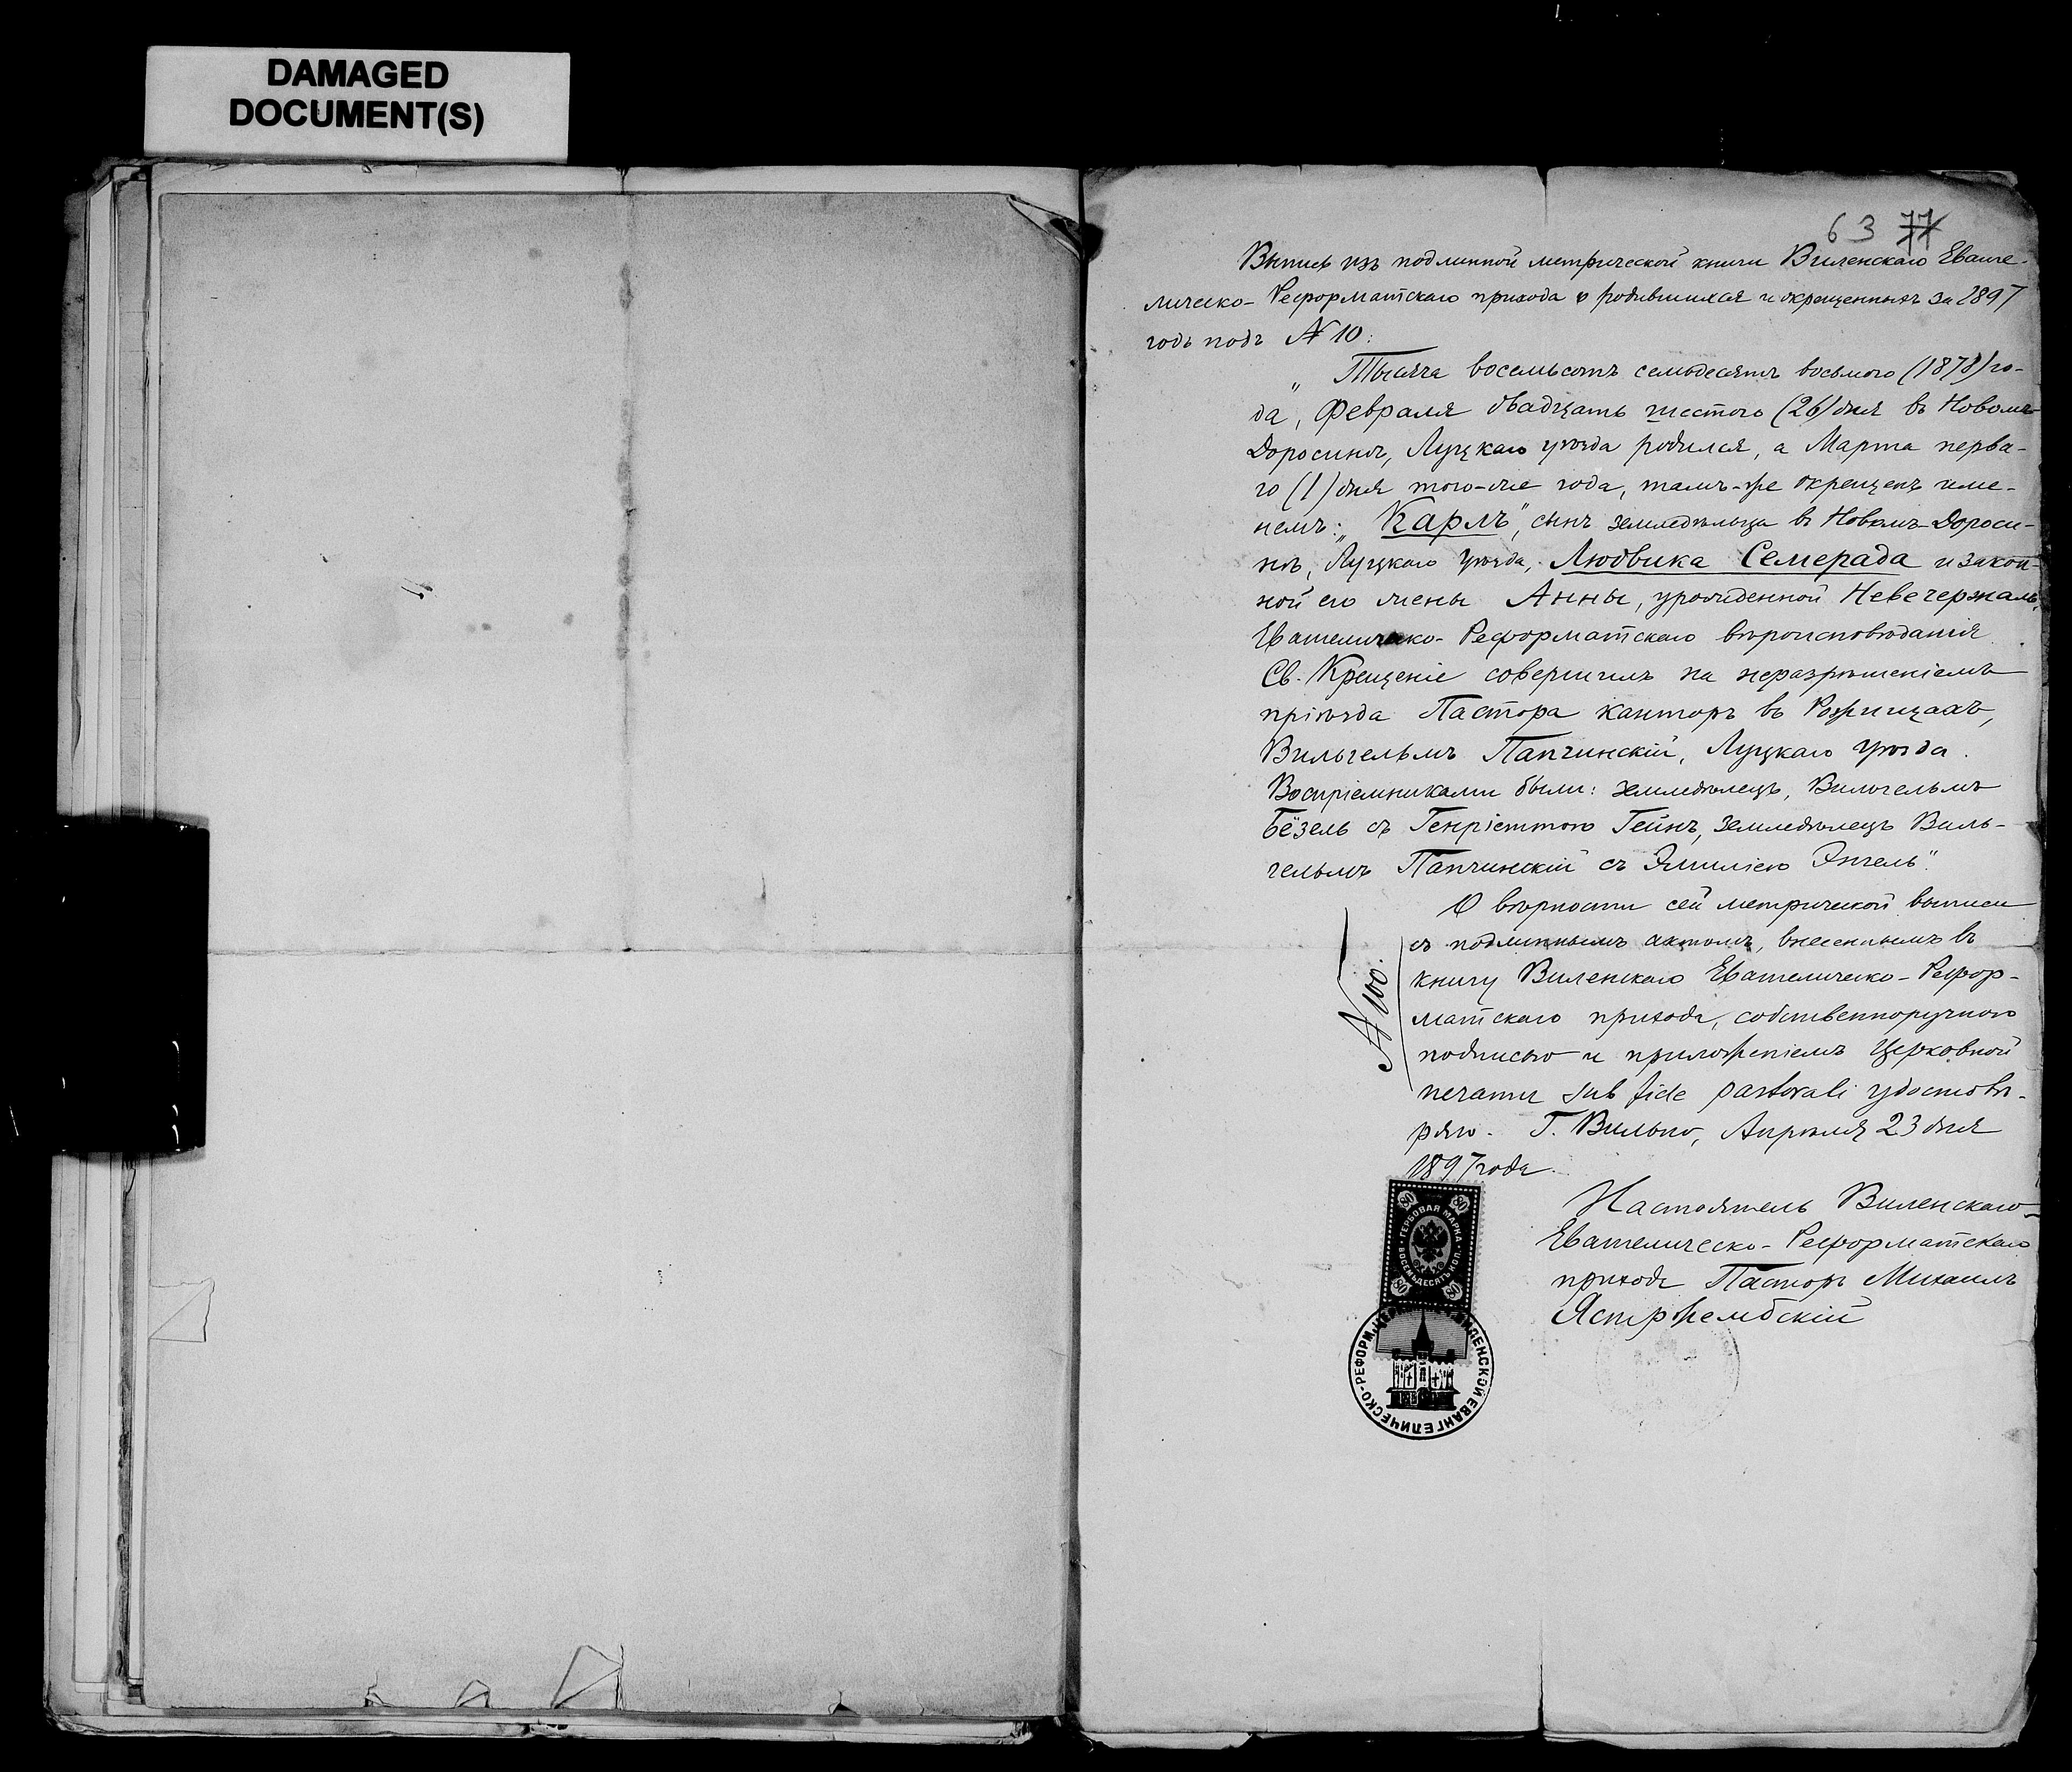 DAMAGED
DOCUMENT(S)
63 77
Выпись изъ подлинной метрической книги Виленскаго Еванге-
лическо-Реформатскаго прихода о родившихся и окрещенныхъ за 1897
годъ подъ № 10:
„Тысяча восемьсотъ семьдесятъ восьмого (1878) го-
да, Февраля двадцать шестого (26) дня въ Новомъ-
Доросинѣ, Луцкаго уѣзда родился, а Марта перва-
го (1) дня того-же года, тамъ-же окрещенъ име-
немъ: „Карлъ", сынъ земледѣльца въ Новомъ-Дороси-
нѣ, Луцкаго уѣзда, Людвика Семерада и закон-
ной его жены Анны, урожденной Невечержаль,
Евангелическо-Реформатскаго вѣроисповѣданія.
Св. Крещеніе совершилъ на
пріѣзда Пастора канторъ въ Рожищахъ,
Вильгельмъ Папчинскій, Луцкаго уѣзда.
Воспріемниками были: земледѣлецъ, Вильгельмъ
Бёзель съ Генріеттою Гейнъ, земледѣлецъ Виль-
гельмъ Папчинскій съ Эмиліею Энгель".
О вѣрности сей метрической выписи
съ подлиннымъ актомъ, внесеннымъ въ
книгу Виленскаго Евангелическо-Рефор-
матскаго прихода, собственноручною
подписью и приложеніемъ Церковной
печати sub fide pastorali удостовѣ-
ряю. Г. Вильно, Апрѣля 23 дня
1897 года.
№ 100.
Настоятель Виленскаго
Евангелическо-Реформатскаго
прихода Пасторъ Михаилъ
Ястржембскій
80 80
ГЕРБОВАЯ МАРКА
ВОСЕМЬДЕСЯТЪ КОП.
80 80
ВИЛЕНСКОЙ ЕВАНГЕЛИЧЕСКО-РЕФОРМ.